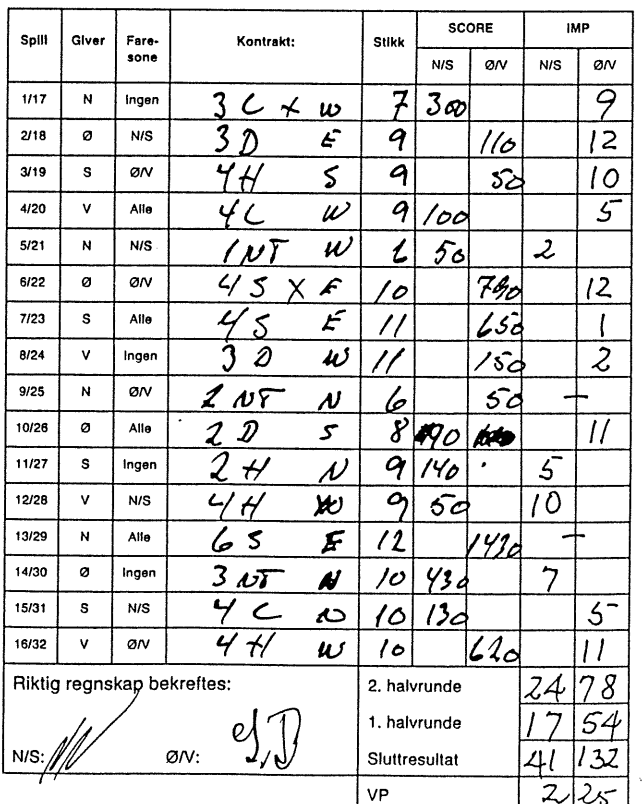 Spill Giver Fare-sone Kontrakt: Stikk SCORE IMP
N/S Ø/V N/S Ø/V
1/17 N Ingen 3 C x W 7 300 9
2/18 Ø N/S 3 D E 9 110 12
3/19 S Ø/V 4 H S 9 50 10
4/20 V Alle 4 C W 9 100 5
5/21 N N/S 1 NT W 6 50 2
6/22 Ø Ø/V 4 S X E 10 790 12
7/23 S Alle 4 S E 11 650 1
8/24 V Ingen 3 D W 11 150 2
9/25 N Ø/V 2 NT N 6 50 —
10/26 Ø Alle 2 D S 8 90 11
11/27 S Ingen 2 H N 9 140 5
12/28 V N/S 4 H W 9 50 10
13/29 N Alle 6 S E 12 1430 —
14/30 Ø Ingen 3 NT N 10 430 7
15/31 S N/S 4 C N 10 130 5
16/32 V Ø/V 4 H W 10 620 11
Riktig regnskap bekreftes: 2. halvrunde 24 78
1. halvrunde 17 54
N/S: Ø/V: Sluttresultat 41 132
VP 2 25